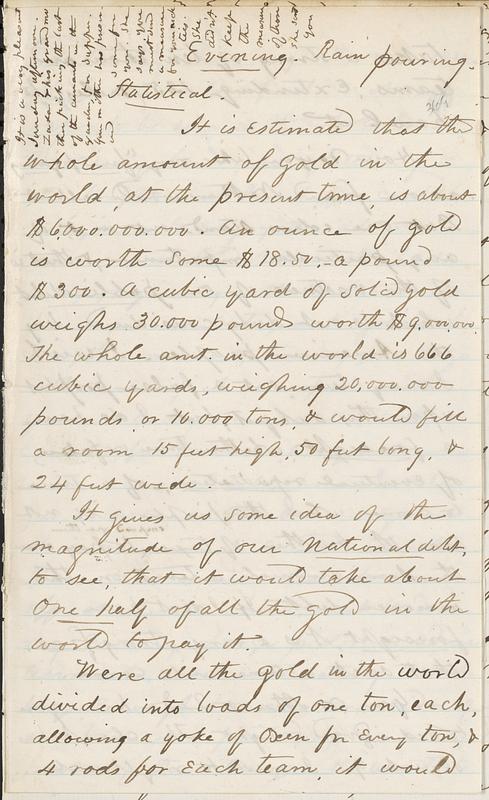 It is a very pleasant
Sunday afternoon.
Evening. Rain pouring.
Statistical.
It is estimated that the
whole amount of gold in the
world, at the present time, is about
$6000.000.000. An ounce of gold
is worth some $18.50,–a pound
$300. A cubic yard of solid gold
weighs 30.000 pounds worth $9,000,000.
The whole amt. in the world is 666
cubic yards, weighing 20,000.000
pounds, or 10.000 tons, & would fill
a room 15 feet high, 50 feet long, &
24 feet wide.
It gives us some idea of the
magnitude of our National debt,
to see, that it would take about
One half of all the gold in the
world to pay it.
Were all the gold in the world
divided into loads of one ton, each,
allowing a yoke of Oxen for Every ton, &
4 rods for Each team, it would